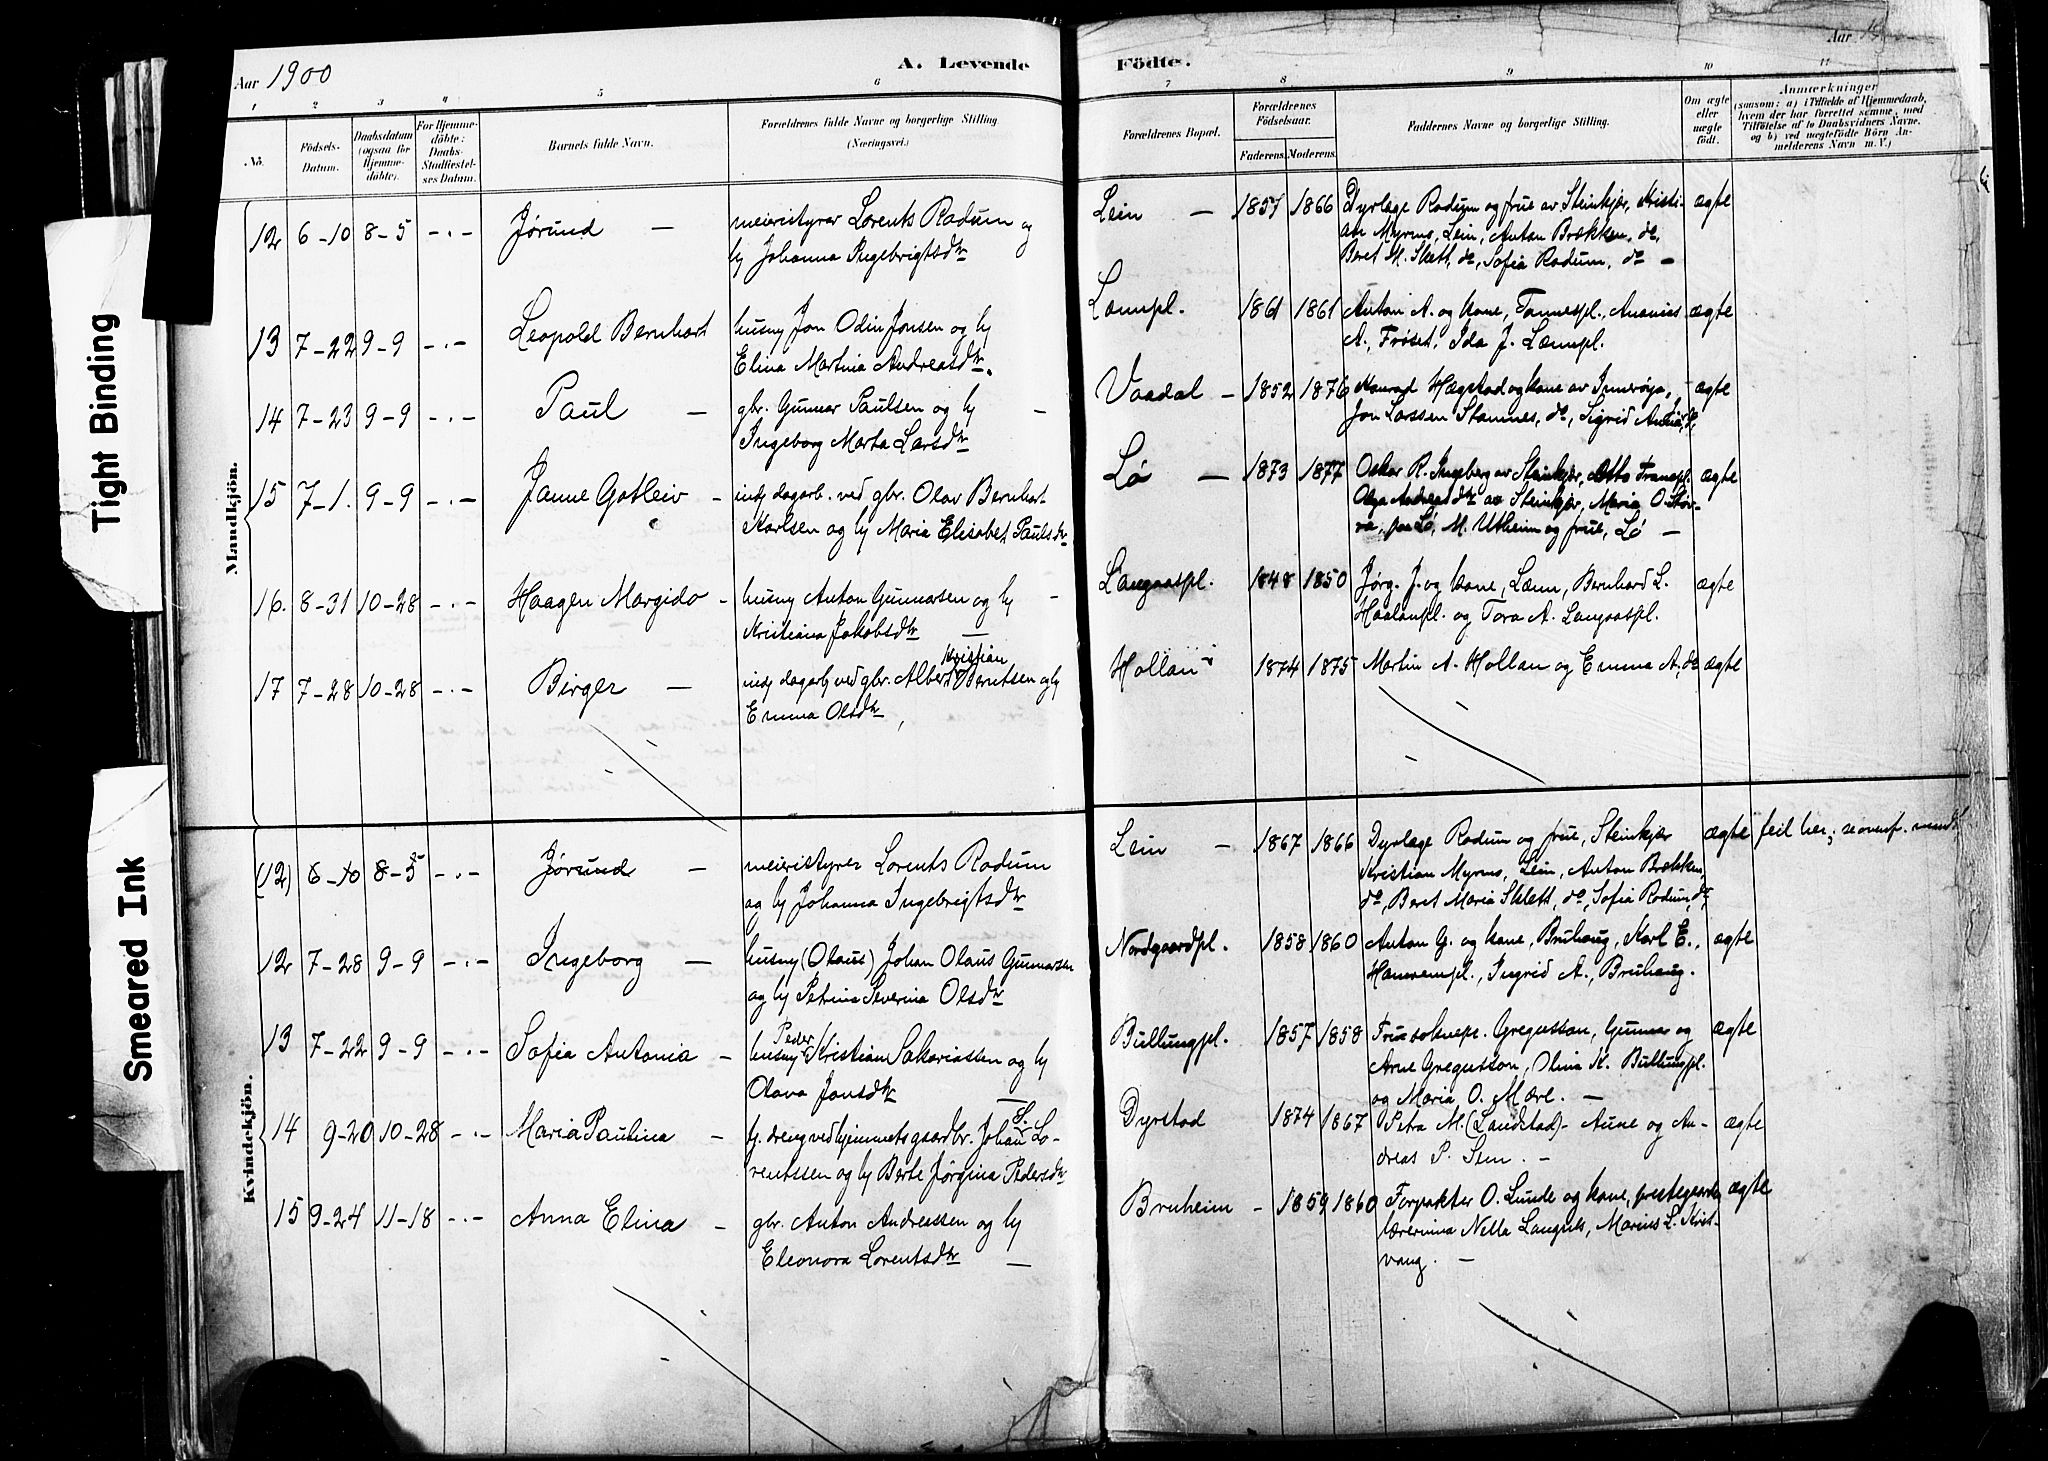 Tight Binding
Smeared Ink
Aar 1900
A. Levende
Födte.
Aar 19
1 2 3 4 5 6 7 8 9 10 11
No.
Födsels-Datum.
Daabsdatum (ogsaa för Hjemme-döbte).
For Hjemme-döbte: Daabs-Stadfæstelses Datum.
Barnets fulde Navn.
Forældrenes fulde Navne og borgerlige Stilling (Næringsvei.)
Forældrenes Bopæl.
Forældrenes Födselsaar.
Faderens. Moderens.
Faddernes Navne og borgerlige Stilling.
Om ægte eller uægte födt.
Anmærkninger
(saasom: a) i Tilfælde af Hjemmedaab, hvem der har forrettet samme, med Tilföielse af to Daabsvidners Navne, og b) ved uægtefödte Börn Anmelderens Navn m. V.)
Mandkjön.
12 6-10 8-5 -.- Jørund — meieristyrer Lorents Rodum og
hj Johanna Ingebrigtsdtr
Lein — 1857 1866 Dyrlæge Rodum og frue av Steinkjer, Kristi-
an Myrmo, Lein, Anton Brækken, do,
Beret M. Slett, do, Sofia Rodum, do —
ægte
13 7-22 9-9 -.- Leopold Bernhart husmj Jon Odin Jonsen og hj
Elina Martina Andreasdtr.
Læmpl. 1861 1861 Anton A. og kone, Tonnespl., Ananias
A., Frøset, Ida J. Læmpl.
ægte
14 7-23 9-9 -.- Paul — gbr. Gunnar Paulsen og hj —
Ingeborg Marta Larsdtr
Vaadal — 1852 1876 Konrad Hægstad og kone av Inderøya,
Jon Larssen Stamnes, do, Sigrid Anna, do,
ægte
15 7-1. 9-9 -.- Janne Gotleiv — indj dagarb. ved gbr. Olav Bernhart
Karlsen og hj Maria Elisabet Paulsdtr
Lø — 1873 1877 Oskar R. Ingeberg av Steinkjer, Otto Tranepl.
Olga Andreasdtr av Steinkjer, Maria O. Stor-
vø, pr Lø, M. Utheim og frue, Lø —
ægte
16. 8-31 10-28 -.- Haagen Margido — husmj Anton Gunnarsen og hj —
Kristiana Jakobsdtr —
Langaaspl. 1848 1850 Jørg. J. og kone, Læm, Bernhard L.
Haalanpl. og Tora A. Langaaspl.
ægte
17 7-28 10-28 -.- Birger — indj dagarbj ved gbr. Albert Kristian Berntsen og hj
Emma Olsdtr
Hollan 1874 1875 Martin A. Hollan og Emma A, do ægte
Kvindekjön.
(12) 6-10 8-5 -.- Jørund — meieristyrer Lorents Rodum
og hj Johanna Ingebrigtsdtr
Lein — 1867 1866 Dyrlæge Rodum og frue, Steinkjer
Kristian Myrmo, Lein, Anton Brækken,
do, Beret Maria Slett, do, Sofia Rodum, do,
ægte feil her; se ovenf. mandk
12 7-28 9-9 -.- Ingeborg — husmj (Olaus) Johan Olaus Gunnarsen
og hj Petrina Severina Olsdtr
Nordgaardpl. 1858 1860 Anton G. og kone, Bruhaug, Karl E.,
Hamrempl., Ingrid A., Bruhaug.
ægte
13 7-22 9-9 -.- Sofia Antonia — husmj Peder Kristian Sakariassen og hj
Olava Jonsdtr —
Bullungpl. 1857 1858 Fru soknepr. Gregusson, Gunnar og
Arne Gregusson, Olina K. Bullungpl.
og Maria O. Mære. —
ægte
14 9-20 10-28 -.- Maria Paulina — hj. dreng ved hjemmets gaard br. Johan S. Lo-
rentssen og hj Berte Jørgina Pedersdtr
Dyrstad 1874 1867 Petra M. (Landstad)- Aune og An-
dreas P. Stem. —
ægte
15 9-24 11-18 -.- Anna Elina — gbr. Anton Andreassen og hj
Eleonora Lorentsdtr —
Bruheim — 1859 1860 Forpakter O. Lunde og kone, prestegaarden
lærerinna Nella Langnes, Marius L. Krist-
vang. —
ægte